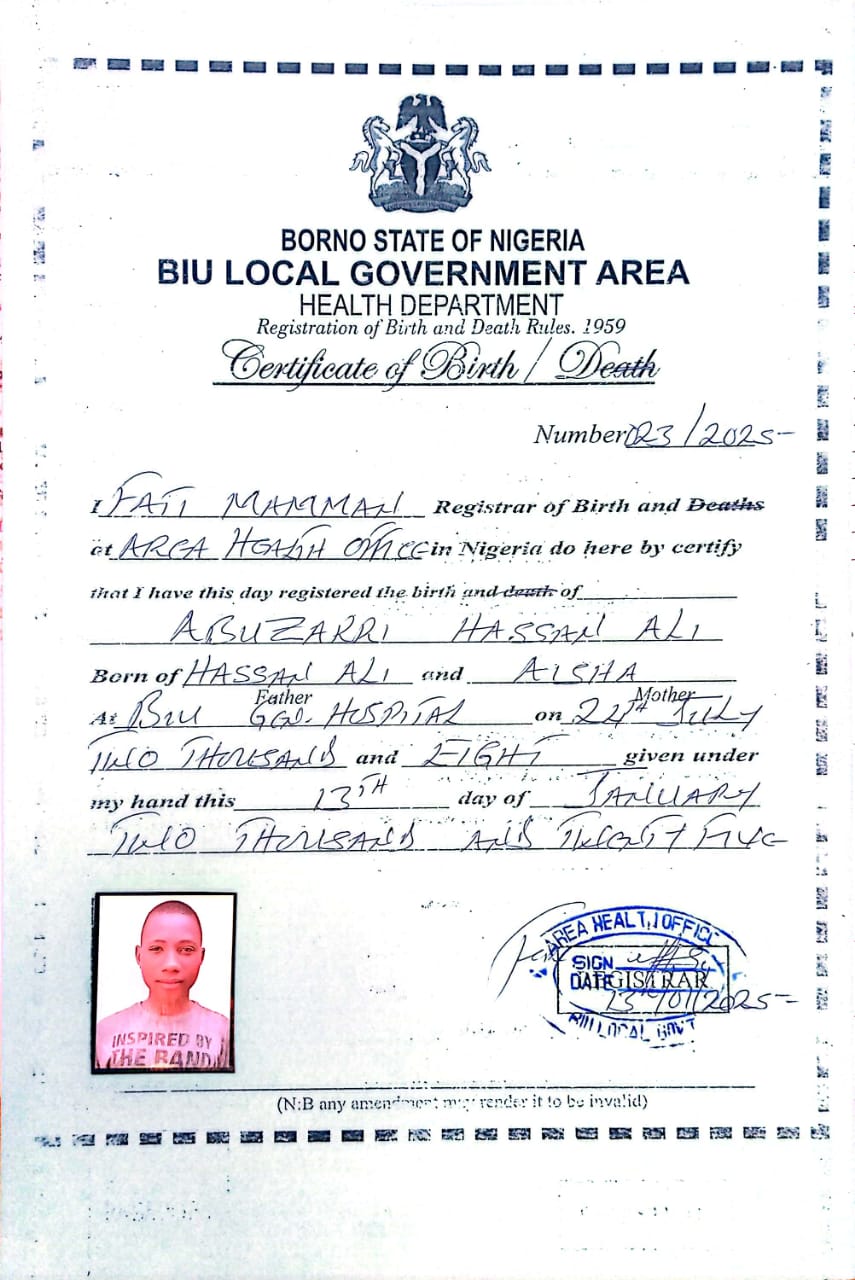 BORNO STATE OF NIGERIA
BIU LOCAL GOVERNMENT AREA
HEALTH DEPARTMENT
Registration of Birth and Death Rules. 1959
Certificate of Birth / Death
Number 023/2025-
I FATI MAMMAN Registrar of Birth and Deaths
at AREA HEALTH OFFICE in Nigeria do here by certify
that I have this day registered the birth and death of
ABUZARRI HASSAN ALI
Born of HASSAN ALI and AISHA
Father Mother
At BIU GGD. HOSPITAL on 24th JULY
TWO THOUSAND and EIGHT given under
my hand this 13TH day of JANUARY
TWO THOUSAND AND TWENTY FIVE
INSPIRED BY
THE BAND
AREA HEALTH OFFICE
SIGN
DATE REGISTRAR
13TH/01/2025-
BIU LOCAL GOVT
(N:B any amendment may render it to be invalid)